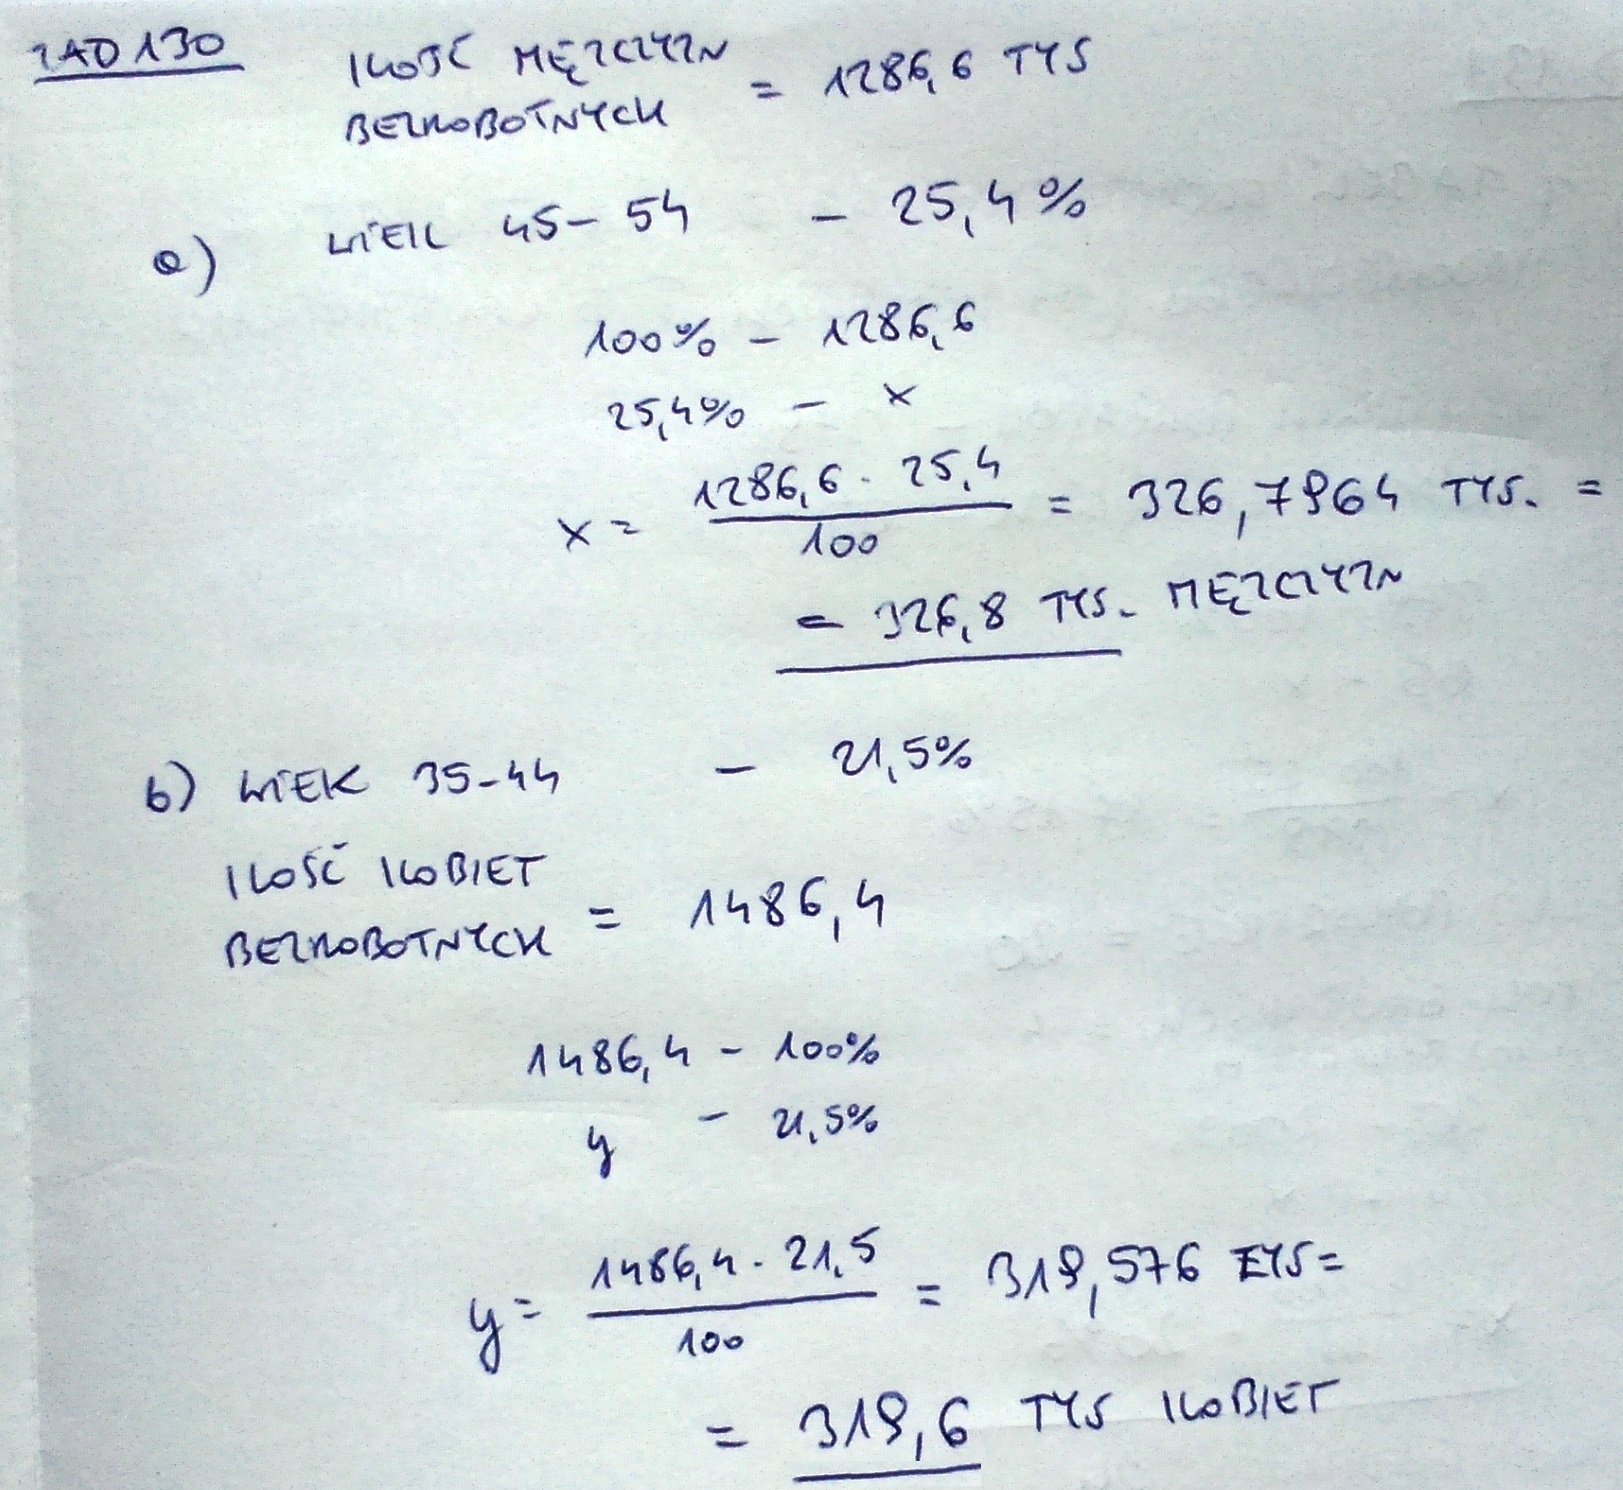 ZAD 130
ILOŚĆ MĘZCZYZN
BEZROBOTNYCH = 1286,6 TYS
a) WIEK 45-54 - 25,4%
100% - 1286,6
25,4% - x
x = 1286,6 · 25,4 / 100 = 326,7964 TYS. =
= 326,8 TYS. MĘZCZYZN
b) WIEK 35-44 - 21,5%
ILOŚĆ KOBIET
BEZROBOTNYCH = 1486,4
1486,4 - 100%
y - 21,5%
y = 1486,4 · 21,5 / 100 = 319,576 TYS =
= 319,6 TYS KOBIET